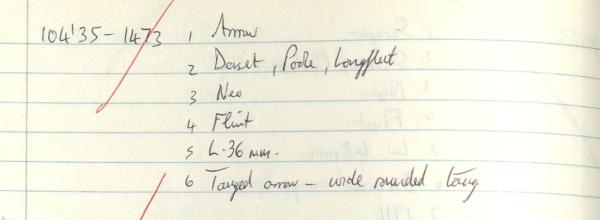 104'35-1473 1 Arrow
2 Dorset, Poole, Longfleet
3 Neo
4 Flint
5 L.36 mm.
6 Tanged arrow - wide rounded tang